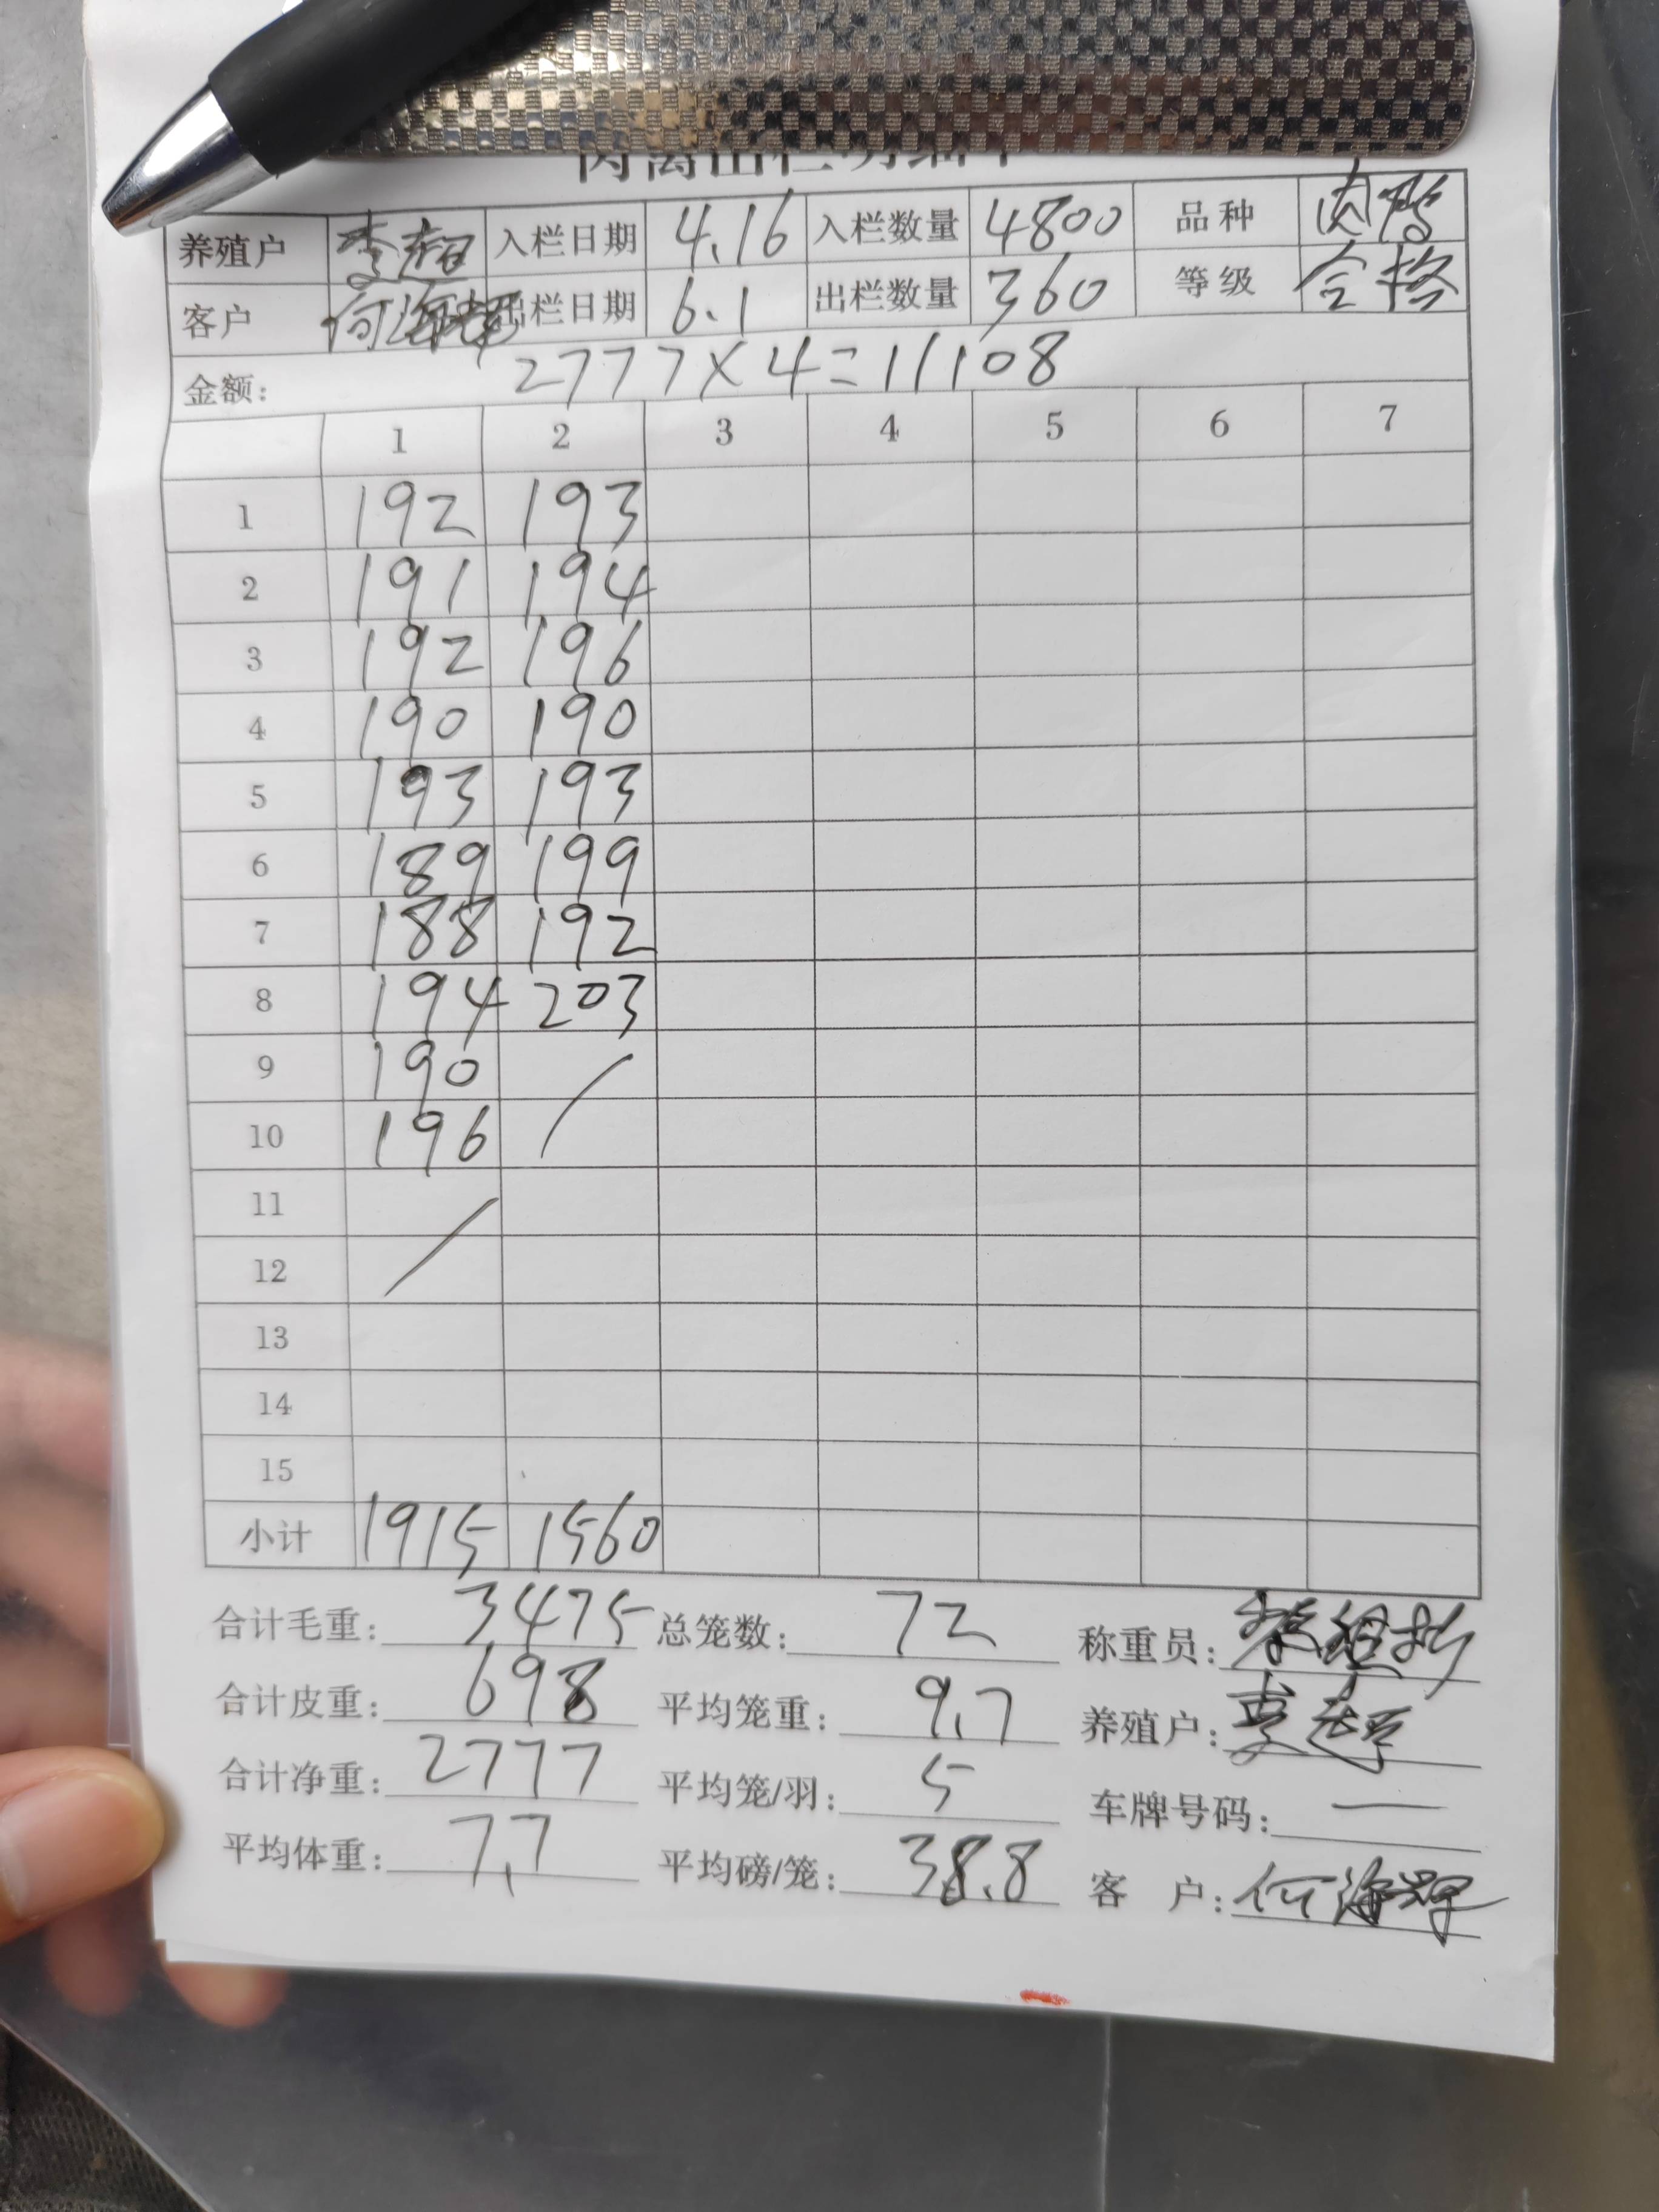 肉禽出栏明细单
养殖户 李超 入栏日期 4.16 入栏数量 4800 品种 肉鸭
客户 何海辉 出栏日期 6.1 出栏数量 360 等级 合格
金额: 2777×4=11108
1 2 3 4 5 6 7
1 192 193
2 191 194
3 192 196
4 190 190
5 193 193
6 189 199
7 188 192
8 194 203
9 190 /
10 196
11 /
12
13
14
15
小计 1915 1560
合计毛重: 3475 总笼数: 72 称重员:
合计皮重: 698 平均笼重: 9.7 养殖户: 李超
合计净重: 2777 平均笼/羽: 5 车牌号码: —
平均体重: 7.7 平均磅/笼: 38.8 客 户: 何海辉